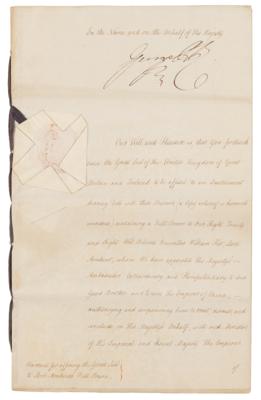 In the Name and on the Behalf of His Majesty
George P R
Our Will and Pleasure is, that You forthwith
cause the Great Seal of the United Kingdom of Great
Britain and Ireland to be affixed to an Instrument
bearing date with these Presents (a Copy whereof is hereunto
annexed) containing a Full Power to Our Right Trusty
and Right Well Beloved Councillor William Pitt Lord
Amherst, whom We have appointed His Majesty's
Ambassador Extraordinary and Plenipotentiary to Our
Good Brother and Cousin The Emperor of China,
authorizing and empowering him to treat, and
conclude in His Majesty's Behalf, with such Minister
of His Imperial and Royal Majesty The Emperor
of
Warrant for affixing the Great Seal
to Lord Amherst's Full Power.